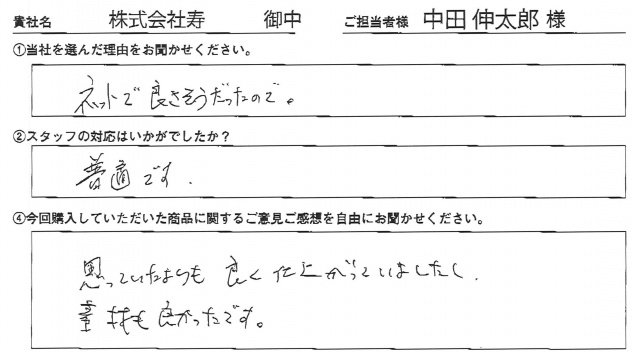 貴社名 株式会社寿 御中 ご担当者様 中田 伸太郎 様
①当社を選んだ理由をお聞かせください。
ネットで良さそうだったので。
②スタッフの対応はいかがでしたか？
普通です.
④今回購入していただいた商品に関するご意見ご感想を自由にお聞かせください。
思っていたよりも良く仕上がっていましたし.
素材も良かったです。